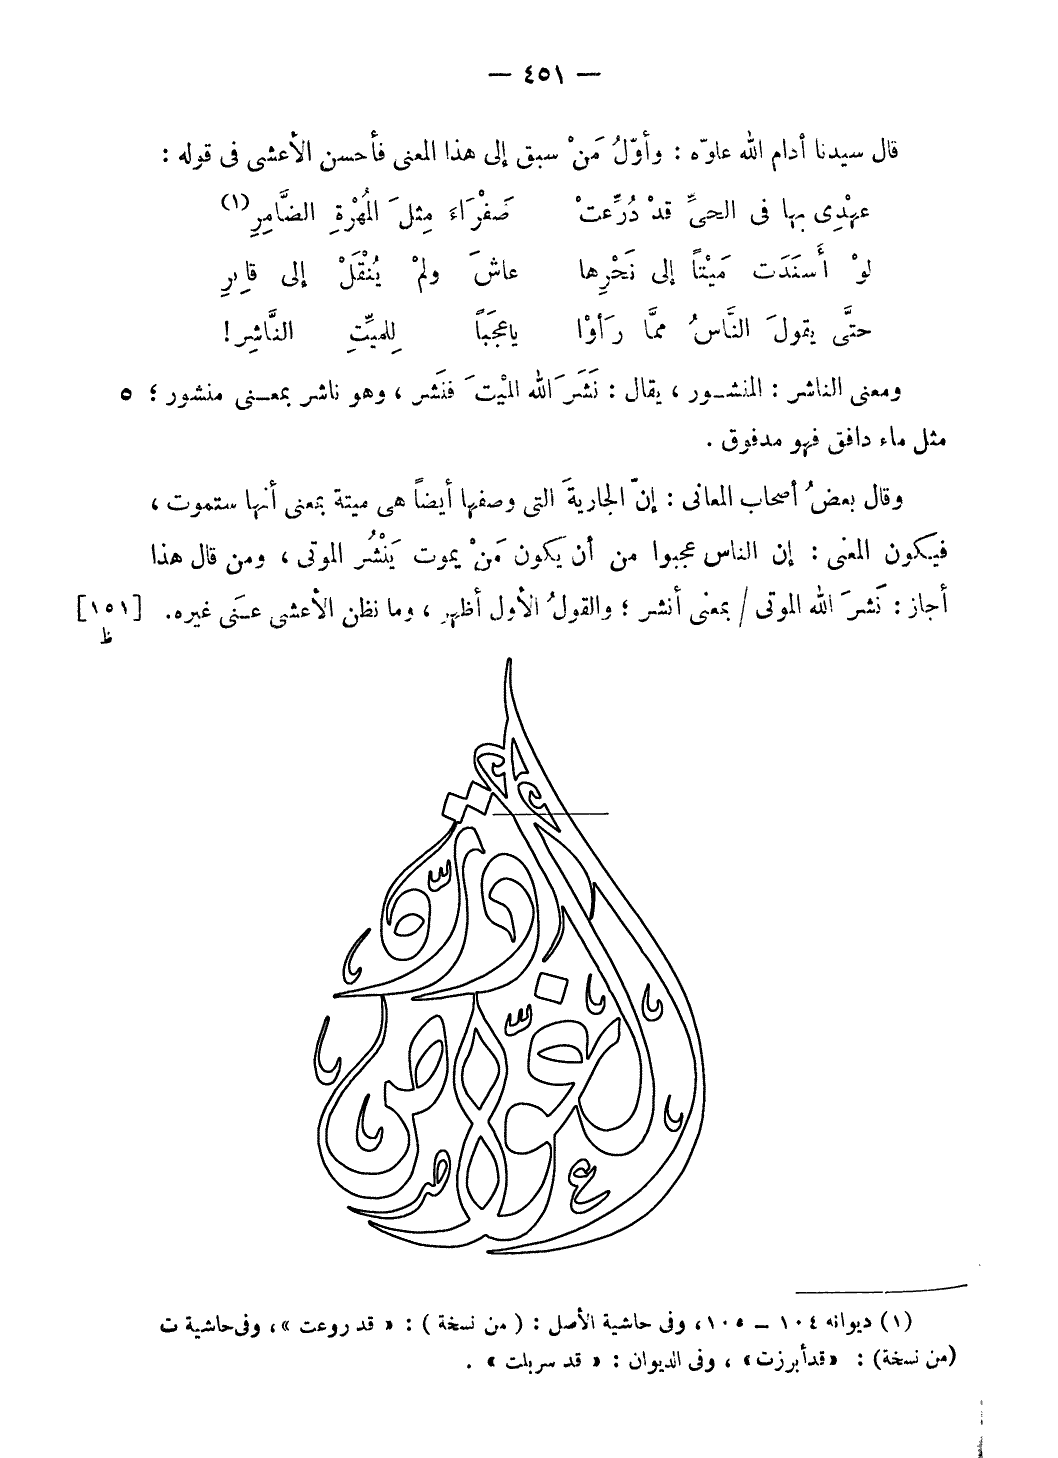 — ٤٥١ —
قال سيدنا أدام الله علوّه : وأوّلُ مَنْ سبق إلى هذا المعنى فأحسن الأعشى فى قوله :
عهْدِى بها فى الحىِّ قدْ دُرِّعتْ صَفْرَاءَ مِثلَ المُهْرةِ الضَّامِرِ(١)
لوْ أَسنَدَت مَيْتاً إلى نَحْرِها عاشَ ولمْ يُنْقَلْ إلى قابِرِ
حتَّى يقولَ النَّاسُ ممَّا رَأوْا ياعجَبَاً لِلميِّتِ النَّاشِرِ!
ومعنى الناشر : المنشور ، يقال : نَشَرَ الله الميْتَ فنَشر ، وهو ناشر بمعنى منشور ؛ ٥
مثل ماء دافق فهو مدفوق .
وقال بعضُ أصحاب المعانى : إنّ الجاريةَ التى وصفها أيضاً هى ميتة بمعنى أنها ستموت ،
فيكون المعنى : إن الناس عجبوا من أن يكون مَنْ يموت يَنْشُر الموتى ، ومن قال هذا
أجاز : نَشرَ الله الموتى / بمعنى أنشر ؛ والقولُ الأول أظهر ، وما نظن الأعشى عنَى غيره. [١٥١]
ظ
درّة
الغوّاص
(١) ديوانه ١٠٤ – ١٠٥، وفى حاشية الأصل : ( من نسخة ) : « قد روعت »، وفى حاشية ت
(من نسخة) : «قد أبرزت» ، وفى الديوان : « قد سربلت » .